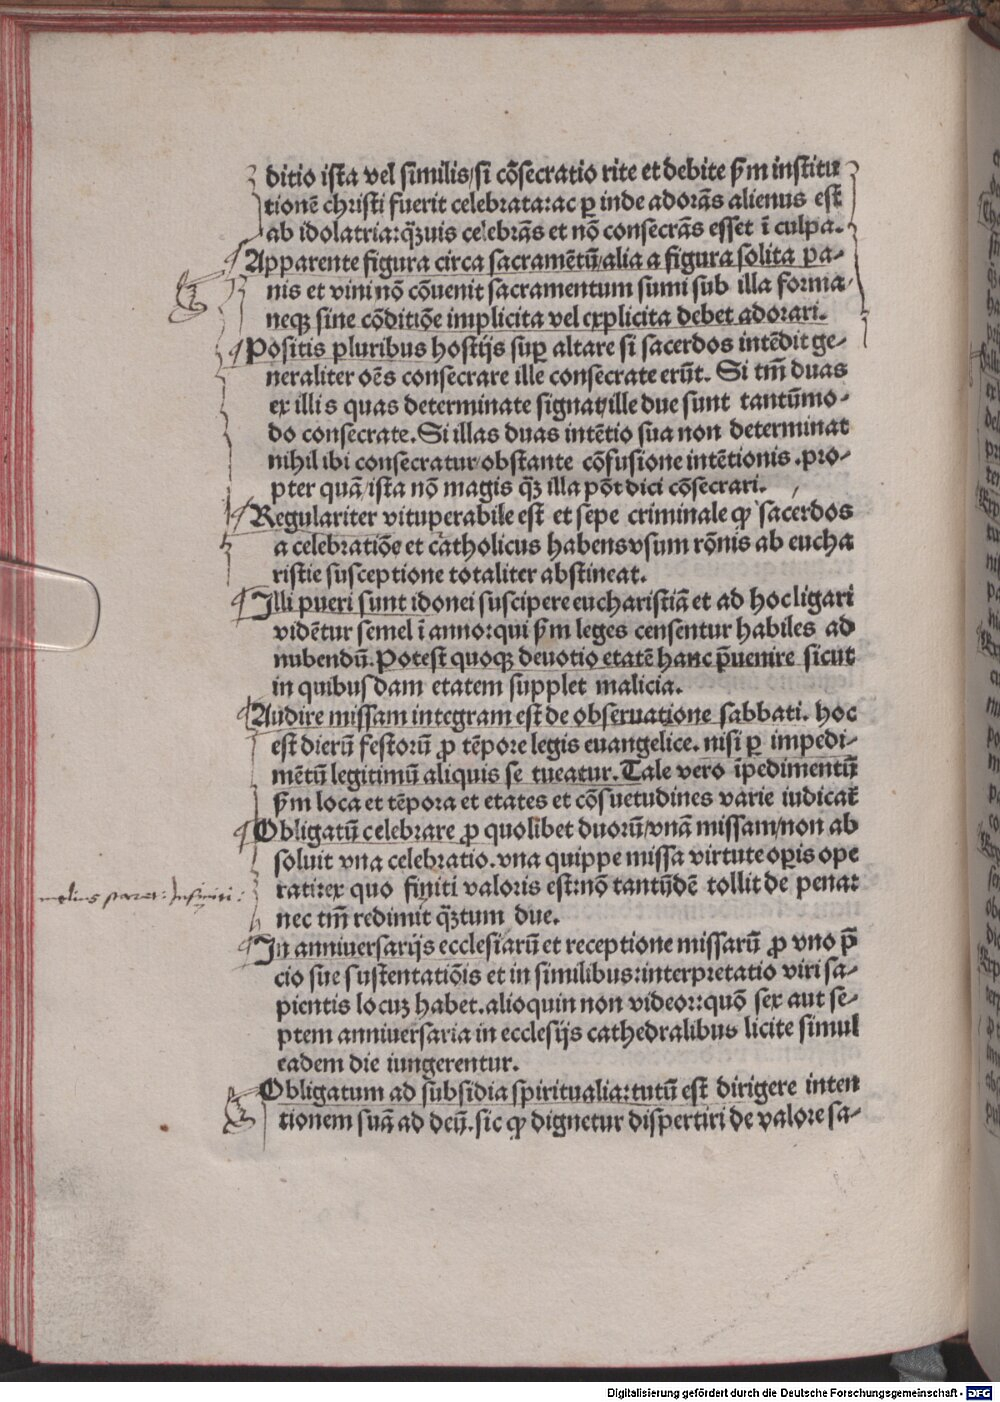 ditio ista vel similis/si cōsecratio rite et debite ẜm institu
tionē christi fuerit celebrata: ac ꝑ inde adorās alienus est
ab idolatria: qꝫuis celebrās et nō consecrās esset ī culpa.
Apparente figura circa sacramētū/alia a figura solita pa-
nis et vini nō cōuenit sacramentum sumi sub illa forma/
neqꝫ sine cōditiōe implicita vel explicita debet adorari.
Positis pluribus hostijs suꝑ altare si sacerdos intēdit ge-
neraliter oēs consecrare ille consecrate erūt. Si tm̄ duas
ex illis quas determinate signat/ille due sunt tantūmo-
do consecrate. Si illas duas intētio sua non determinat
nihil ibi consecratur/obstante cōfusione intētionis. pro-
pter quā/ista nō magis qꝫ illa pōt dici cōsecrari.
Regulariter vituperabile est et sepe criminale ꝙ sacerdos
a celebratiōe et catholicus habens vsum rōnis ab eucha
ristie susceptione totaliter abstineat.
Illi pueri sunt idonei suscipere eucharistiā et ad hoc ligari
vidētur semel ī anno: qui ẜm leges censentur habiles ad
nubendū. Potest quoqꝫ deuotio etatē hanc p̄uenire sicut
in quibusdam etatem supplet malicia.
Audire missam integram est de obseruatione sabbati. hoc
est dierū festorū ꝓ tēpore legis euangelice. nisi ꝑ impedi-
mētū legitimū aliquis se tueatur. Tale vero īpedimentū
ẜm loca et tēpora et etates et cōsuetudines varie iudicat̄
Obligatū celebrare ꝓ quolibet duorū/vnā missam/non ab
soluit vna celebratio. vna quippe missa virtute oꝑis ope
rati: ex quo finiti valoris est: nō tantūdē tollit de pena:
nec tm̄ redimit qꝫtum due.
melius 
In anniuersarijs ecclesiarū et receptione missarū ꝓ vno p̄
cio sue sustentatiōis et in similibus: interpretatio viri sa-
pientis locuꝫ habet. alioquin non video: quō sex aut se-
ptem anniuersaria in ecclesijs cathedralibus licite simul
eadem die iungerentur.
Obligatum ad subsidia spiritualia: tutū est dirigere inten
tionem suā ad deū. sic ꝙ dignetur dispertiri de valore sa-
Digitalisierung gefördert durch die Deutsche Forschungsgemeinschaft - DFG